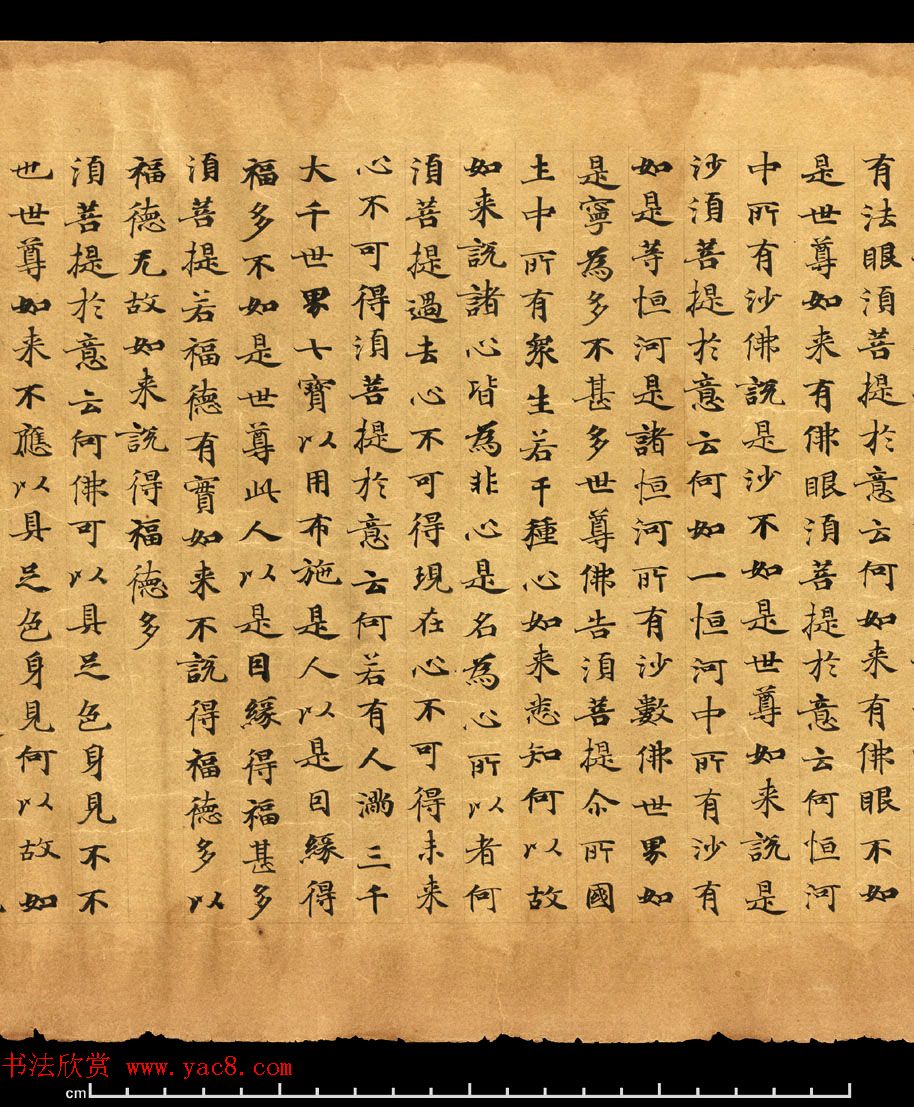 有法眼湏菩提於意云何如来有佛眼不如
是世尊如来有佛眼湏菩提於意云何恒河
中所有沙佛說是沙不如是世尊如来說是
沙湏菩提於意云何如一恒河中所有沙有
如是等恒河是諸恒河所有沙數佛世界如
是寧為多不甚多世尊佛告湏菩提尒所國
土中所有衆生若干種心如来悉知何以故
如来說諸心皆為非心是名為心所以者何
湏菩提過去心不可得現在心不可得未来
心不可得湏菩提於意云何若有人滿三千
大千世界七寶以用布施是人以是因緣得
福多不如是世尊此人以是因緣得福甚多
湏菩提若福德有實如来不說得福德多以
福德无故如来說得福德多
湏菩提於意云何佛可以具足色身見不不
也世尊如来不應以具足色身見何以故如
书法欣赏 www.yac8.com
cm